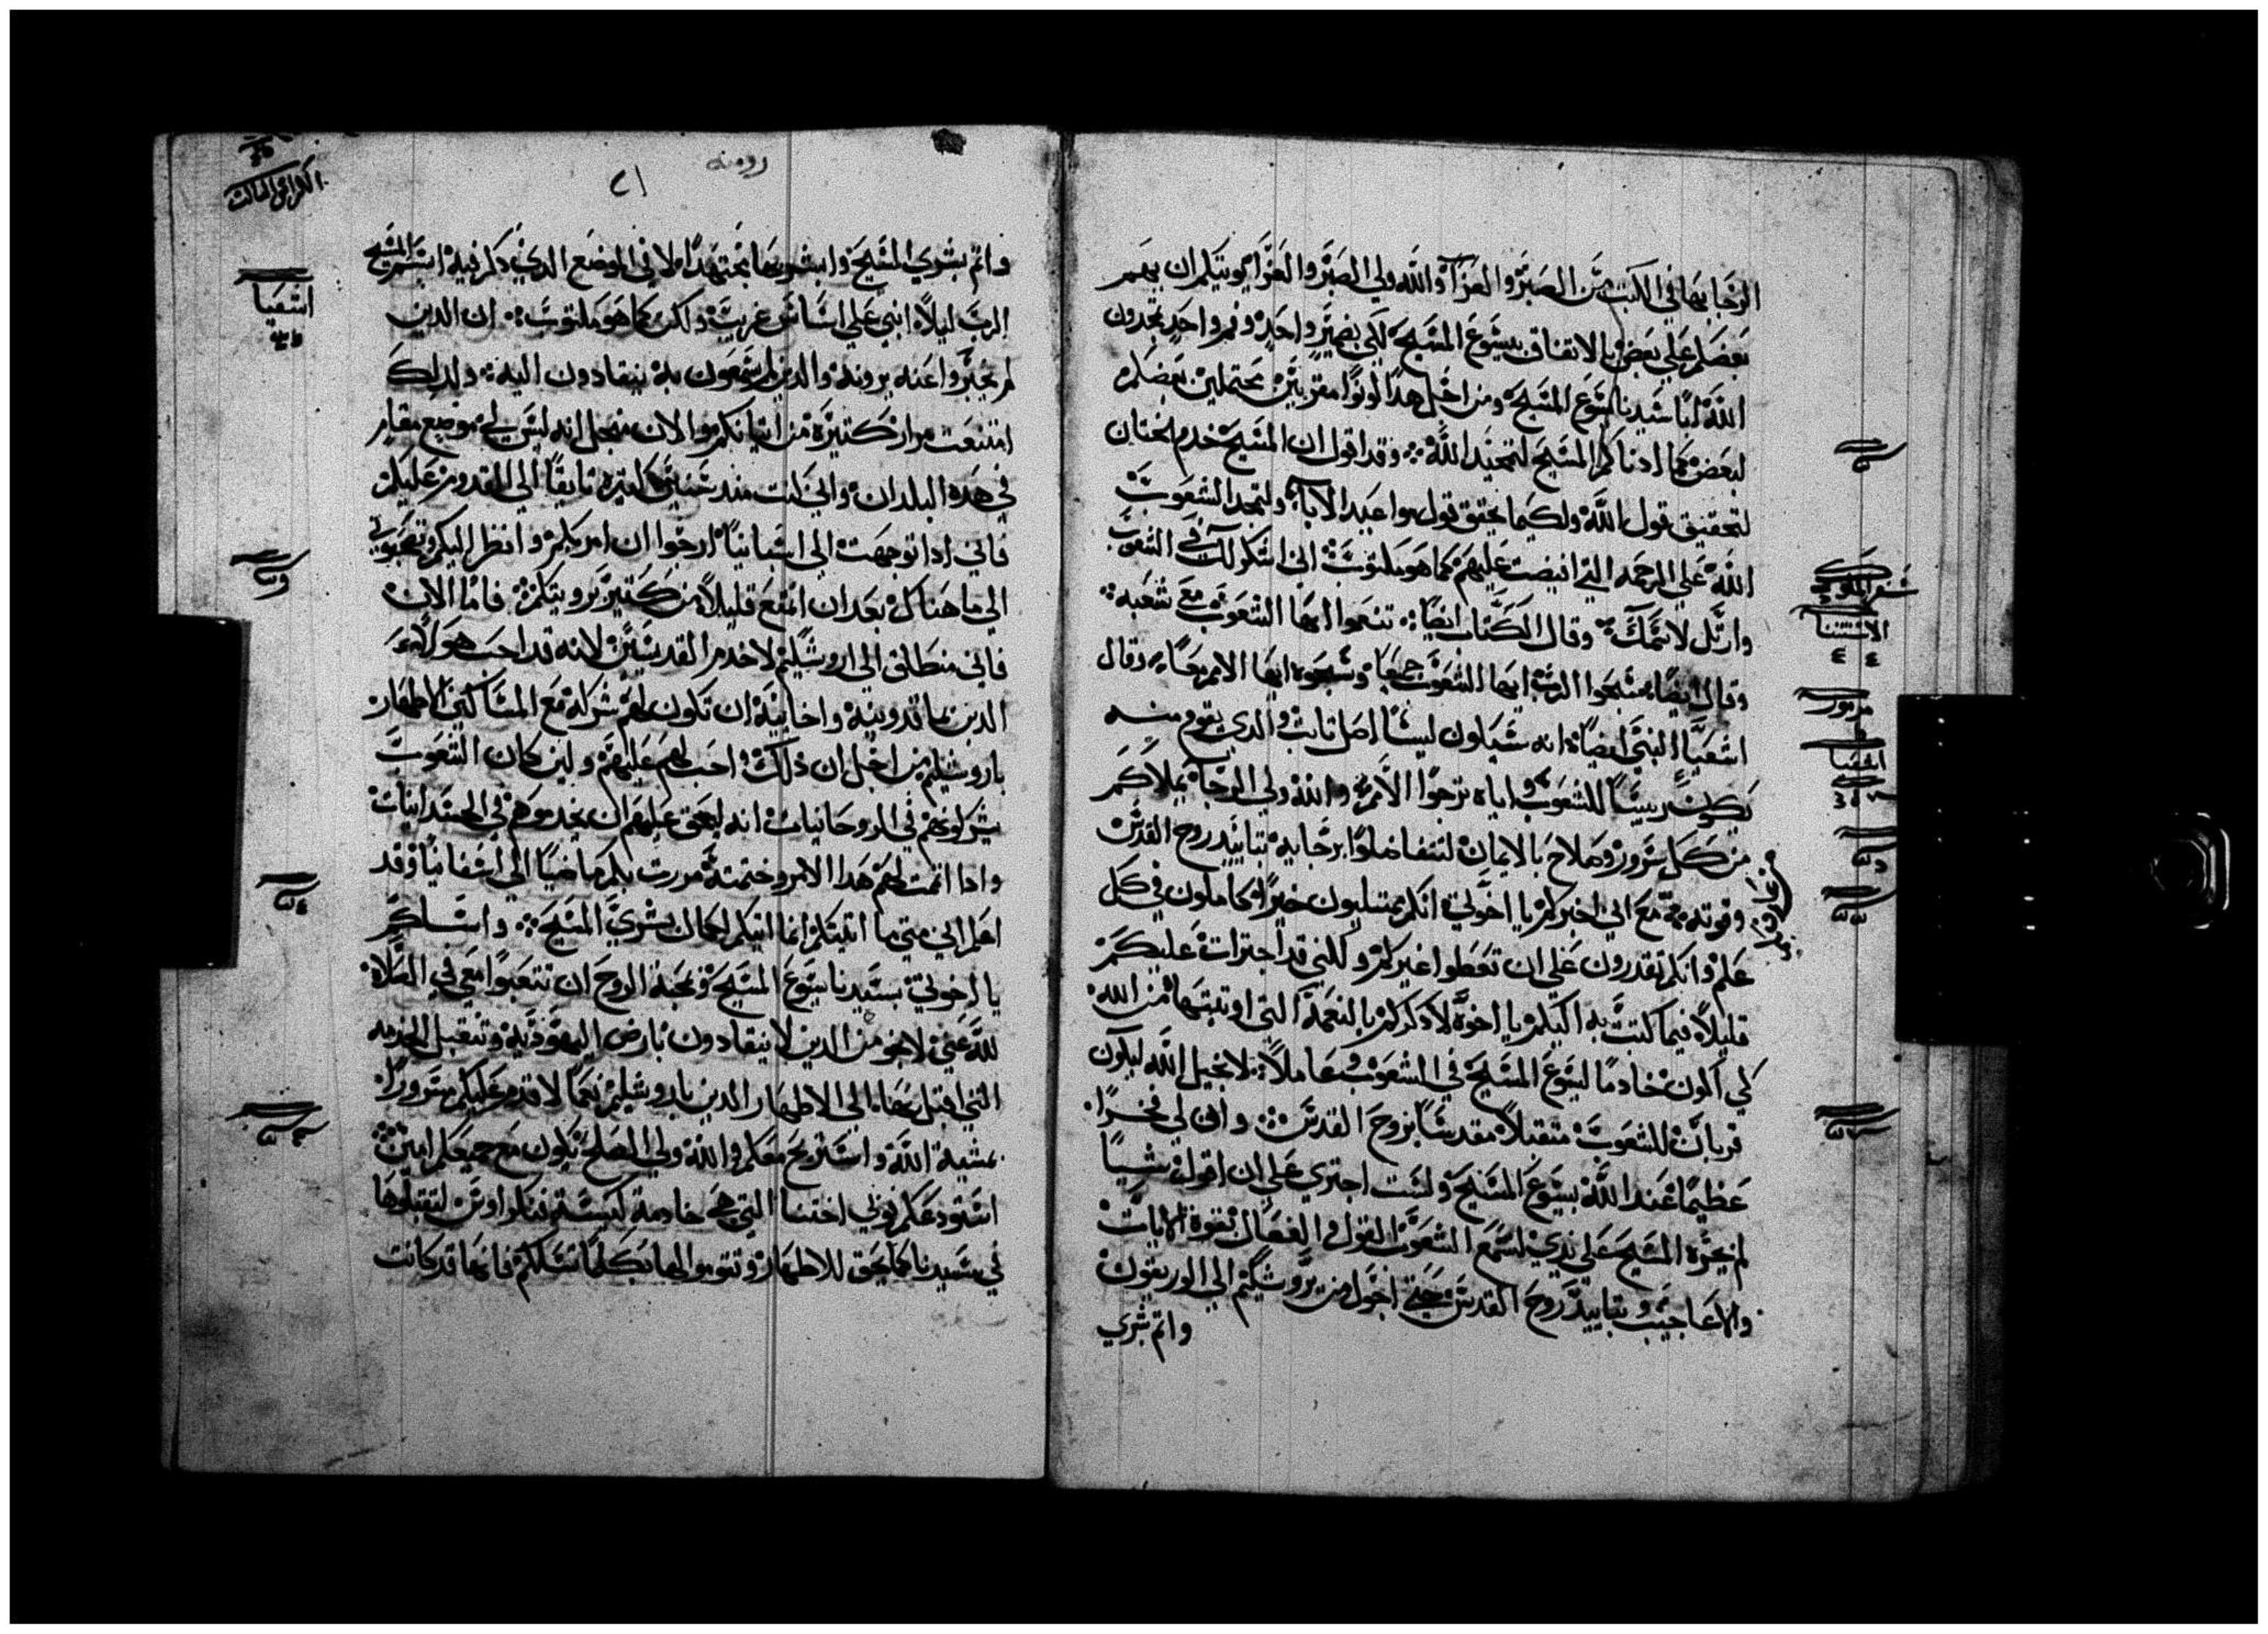 الرجا بها في الكتب من الصبر والعزاء والله ولي الصبر والعزا يويتكم ان يهم
بعضكم على بعض بالاتفاق بيسوع المسيح لكي بضمير واحد وفم واحد تمجدون
الله ابا سيدنا يسوع المسيح ومن اجل هذا كونوا مقتربين محتملين بعضكم
لبعض كما ادناكم المسيح لتمجيد الله وقد اقول ان المسيح خدم الختان
لتحقيق قول الله ولكيما يحقق قول مواعيد الابآ ولتمجد الشعوب
الله على الرحمه التي افيضت عليهم كما هو مكتوب اني اشكر لك في الشعوب
وارتل لاسمك وقال الكتاب ايضا تنعموا ايها الشعوب مع شعبه
وقال ايضا سبحوا الرب ايها الشعوب جميعا وسبحوه ايها الامم جمعا وقال
اشعيا النبي ايضا انه سيكون ليسا اصل ثابت والدي يقوم منه
يكون رييسا للشعوب واياه ترجوا الامم والله ولي الرجا يملاكم
من كل سرور وصلاح بالايمان لتتفاضلوا برجايه بتاييد روح القدس
وقوته مع اني اخبركم يا اخوتي انكم ممتليون خيرا وكاملون في كل
علم وانكم تقدرون على ان تعظوا غيركم وكلني قد اجترات عليكم
قليلا فيما كتبت به اليكم يا اخوة لادكركم بالنعمة التي اوتيتها من الله
كي اكون خادما ليسوع المسيح في الشعوب وعاملا لانجيل الله ليكون
قربان للشعوب متقبلا مقدسا بروح القدس وان لي فخرا
عظيما عند الله بيسوع المسيح ولست اجتري على ان اقول شييا
لم يجره المسيح على يدي لسمع الشعوب القول والفعال بقوة الايات
والاعاجيب وبتاييد روح القدس حتي اجول من يروشليم الى الوريقون
واتم بشري
شفر الملوك
الاستثنا
مزمور
اشعيا
رومية
٢١
الكراس الثالث
واتم بشري المسيح وابشر بها مجتهدا لا في الموضع الدي دكر فيه اسم المسيح
الرب ليلا ابني على اساس غريب ولكن كما هو مكتوب ان الدين
لم يخبروا عنه يرونه والدين لم يسمعون به ينقادون اليه ولدلك
امتنعت مرار كثيرة من اتيانكم والان فمجل انه ليس لي موضع مقام
في هده البلدان واني كنت مند سنين كثيره تايقا الى القدوم عليكم
فاني ادا توجهت الى اسبانيا ارجوا ان امر بكم وانظر اليكم وتصحبوني
الى ما هناك بعد ان اتمتع قليلا من كثير برويتكم فاما الان
فاني منطلق الى اروشليم لاخدم القديسين لانه قد احب هولاء
الدين بماقدونيه واخاييه ان تكون لهم شركة مع المساكين الاطهار
باروشليم من اجل ان ذلك واجب لهم عليهم ولين كان الشعوب
شركوهم في الروحانيات انه ليحق عليهم ان يخدموهم في الجسدانيات
وادا اتممت لهم هدا الامر وختمته مررت بكم ماضيا الى اسفانيا وقد
اعلم اني متي ما اتيتكم انما اتيكم بكمال بشري المسيح واسلكم
يا اخوتي بسيدنا يسوع المسيح ومحبة الروح ان تتعبوا معي في الصلاة
لله عني لانجو من الدين لا ينقادون بارض اليهودية وتتقبل الخدمه
التي اقبل بها الى الاطهار الدين باروشليم كيما لاقدم عليكم مسرورا
بمشية الله واستريح معكم والله ولي الصلح يكون مع جميعكم امين
استودعكم فوني اختنا التي هي خادمة كنيسة قنكراوس لتقبلوها
في سيدنا كما يحق للاطهار وتقوموا لها بكلما تسلكم فانها قد كانت
اشعيا